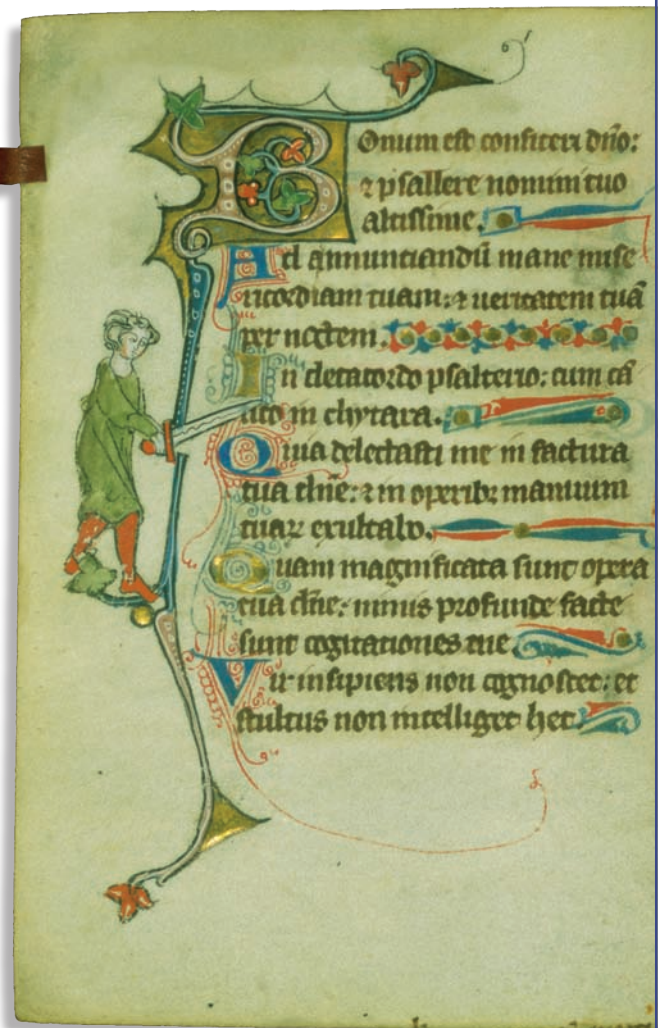 Bonum est confiteri dño:
⁊ psallere nomini tuo
altissime.
Ad annunciandũ mane mise
ricordiam tuam: ⁊ ueritatem tuã
per noctem.
In decacordo psalterio: cum cã
tico in chytara.
Quia delectasti me in factura
tua dñe: ⁊ in operibꝫ manuum
tuaꝝ exultabo.
Quam magnificata sunt opera
tua dñe: nimis profunde facte
sunt cogitationes tue
Vir insipiens non cognoscet: et
stultus non intelliget hec.